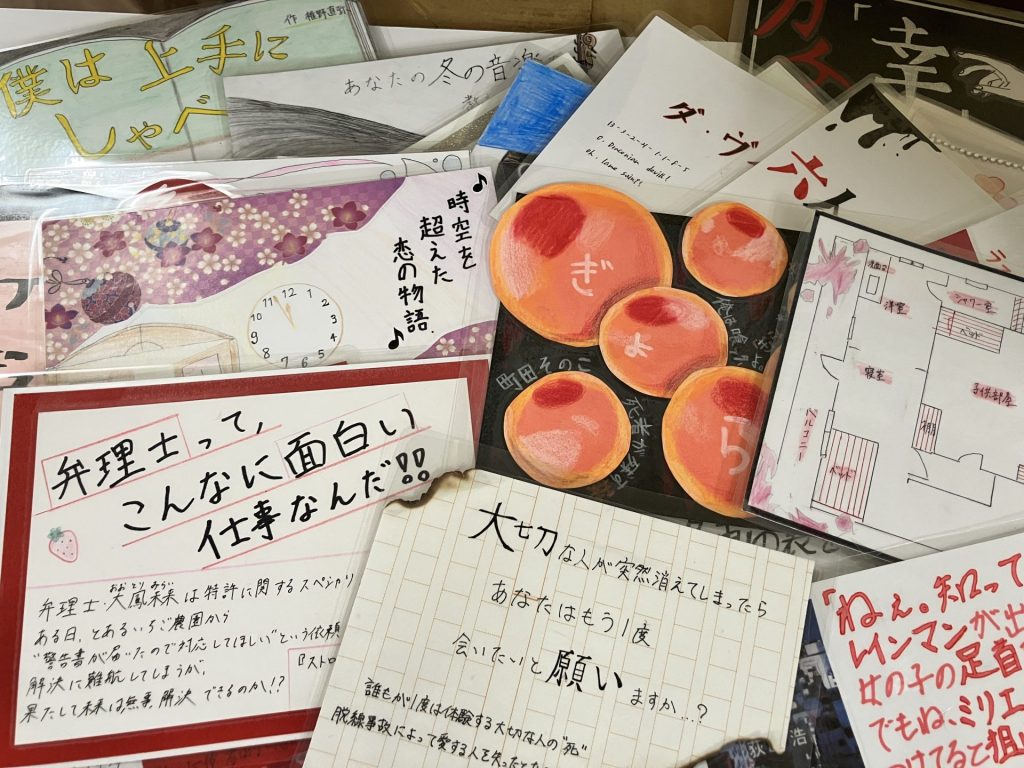 作 椎野直弥
僕は上手に
しゃべ
あなたの冬の音楽
時空を
超えた
恋の物語
12
11
1
10
2
9
3
8
4
7
6
5
ダ・ヴ
13-3-2-21-1-1-8-5
O, Draconian devil!
Oh, lame saint!
「幸
六
ぎ
ょ
ら
町田そのこ
洋室
シャワー室
ベッド
寝室
子供部屋
棚
ベッド
バルコニー
弁理士って,
こんなに面白い
仕事なんだ!!
弁理士・大鳳未来は特許に関するスペシャリ
おおとり みらい
ある日、とあるいちご農園から
"警告書が届いたので対応してほしい"という依頼
解決に難航してしまうが、
果たして未来は無事解決できるのか!?
『ストロ
大切な人が突然消えてしまったら
あなたはもう1度
会いたいと願い
ますか…?
誰もが1度は体験する大切な人の"死"
脱線事故によって愛する人を失った
「ねぇ。知って
レインマンが出
女の子の足首
でもね、ミリエ
つけてると狙